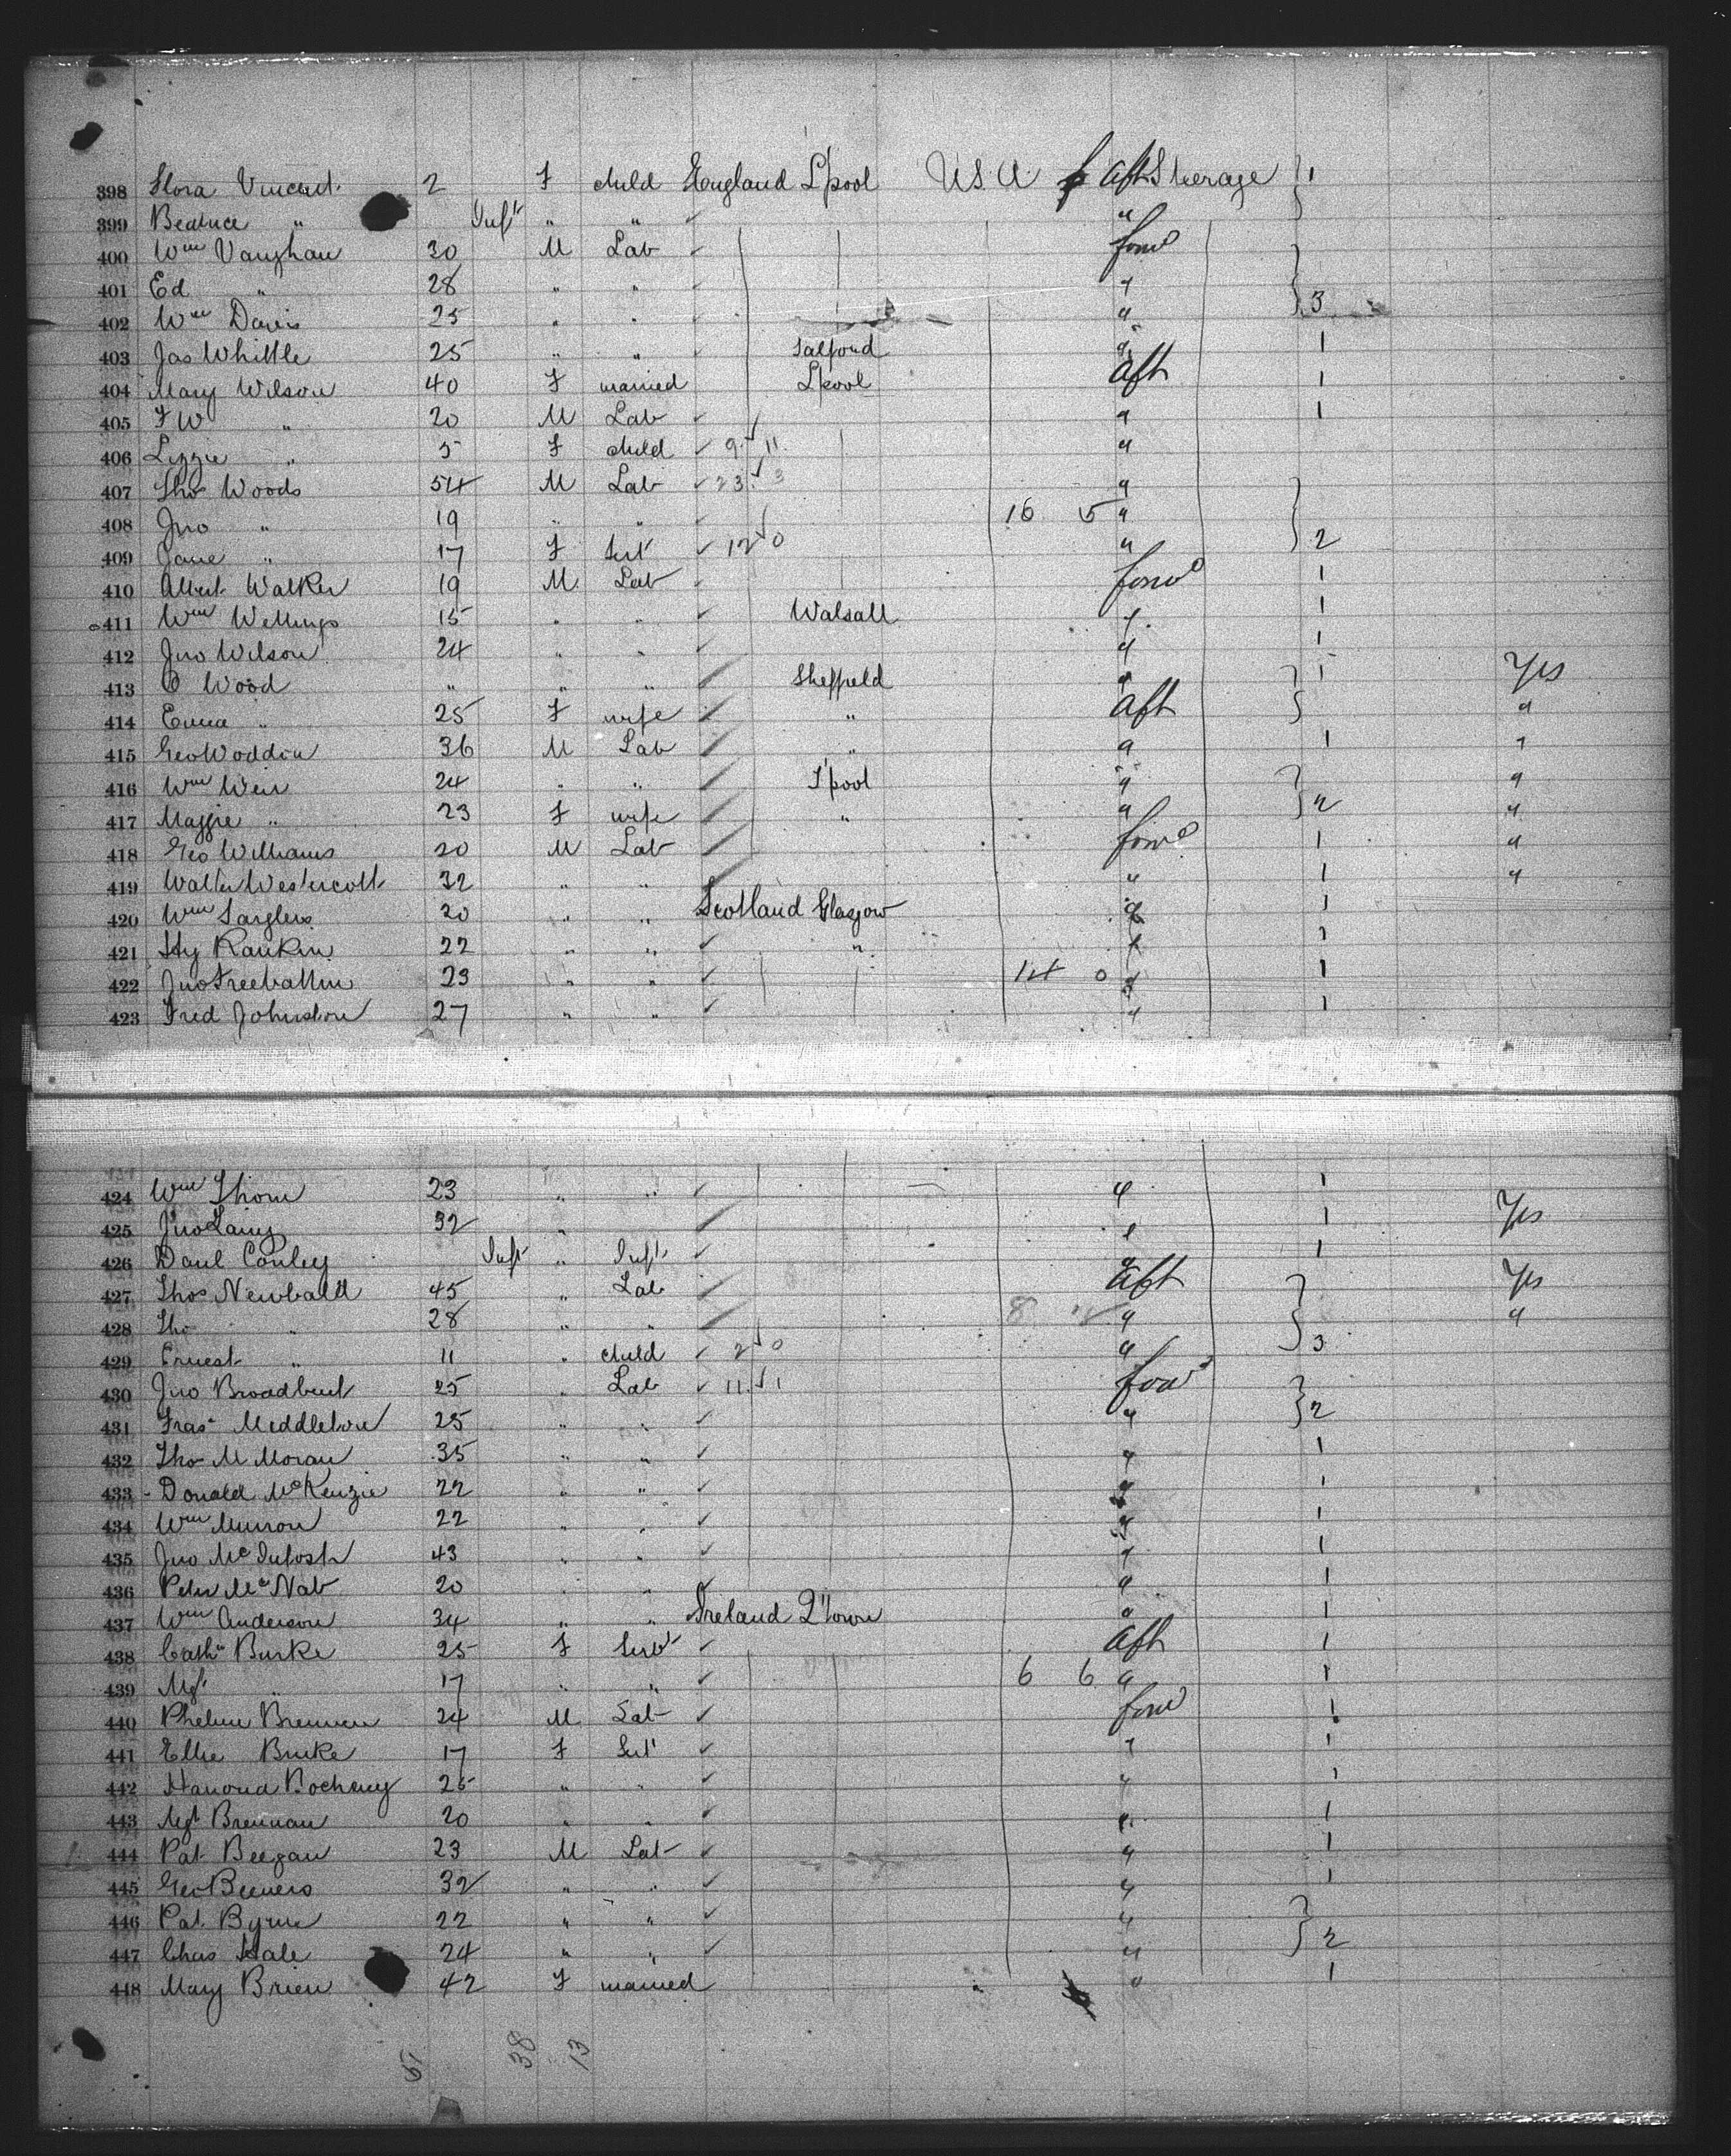 398 Flora Vincent 2 F child England L'pool U.S.A aft Steerage } 1
399 Beatrice " Inft " " ✓ "
400 Wm Vaughan 30 M Lab ✓ forwd
401 Ed " 28 " " "
402 Wm Davis 25 " " " } 3
403 Jas Whittle 25 " " Salford " 1
404 Mary Wilson 40 F married L'pool aft 1
405 F W " 20 M Lab ✓ " 1
406 Lizzie " 5 F child ✓ 9 11 "
407 Thos Woods 54 M Lab ✓ 23 3 "
408 Jno " 19 " " ✓ 16 5 "
409 Jane " 17 F Sert ✓ 12 0 " } 2
410 Albert Walker 19 M Lab ✓ forwd 1
411 Wm Wellings 15 " " ✓ Walsall " 1
412 Jno Wilson 24 " " ✓ " 1
413 Wood " " " Sheffield " } 1 Yes
414 Emma " 25 F wife " aft "
415 Geo Woddin 36 M Lab " " 1 "
416 Wm Weir 24 " " L'pool " "
417 Maggie " 23 F wife " " } 2 "
418 Geo Williams 20 M Lab forwd 1 "
419 Walter Westercott 32 " " " 1 "
420 Wm 20 " " Scotland Glasgow " 1
421 Hy Rankin 22 " " ✓ " " 1
422 Jno 23 " " ✓ 14 0 " 1
423 Fred Johnston 27 " " ✓ " 1
424 Wm Thom 23 " " ✓ " 1
425 Jno Laing 32 " " 1 Yes
426 Danl Conley Inft " Inft ✓ " 1
427 Thos Newbald 45 " Lab aft Yes
428 Tho " 28 " " 8 " "
429 Ernest " 11 " child ✓ 2 0 " } 3
430 Jno Broadbent 25 " Lab ✓ 11 1 forwd
431 Fras Meddleton 25 " " ✓ " } 2
432 Tho M Moran 35 " " ✓ " 1
433 Donald McKenzie 22 " " ✓ " 1
434 Wm Munron 22 " " ✓ " 1
435 Jno McIntosh 43 " " ✓ " 1
436 Peter McNab 20 " " ✓ " 1
437 Wm Anderson 34 " " Ireland Q'town " 1
438 Cathe Burke 25 F Servt ✓ aft 1
439 Mgt " 17 " " ✓ 6 6 " 1
440 Phelim Brennan 24 M Lab ✓ forwd 1
441 Ellie Burke 17 F Sert ✓ " 1
442 Hanora 25 " " ✓ " 1
443 Mgt Brennan 20 " " ✓ " 1
444 Pat Beegan 23 M Lab ✓ " 1
445 Geo Beevers 32 " " ✓ " 1
446 Pat Byrne 22 " " ✓ "
447 Chas Hale 24 " " ✓ " } 2
448 Mary Brien 42 F married " 1
51 38 13